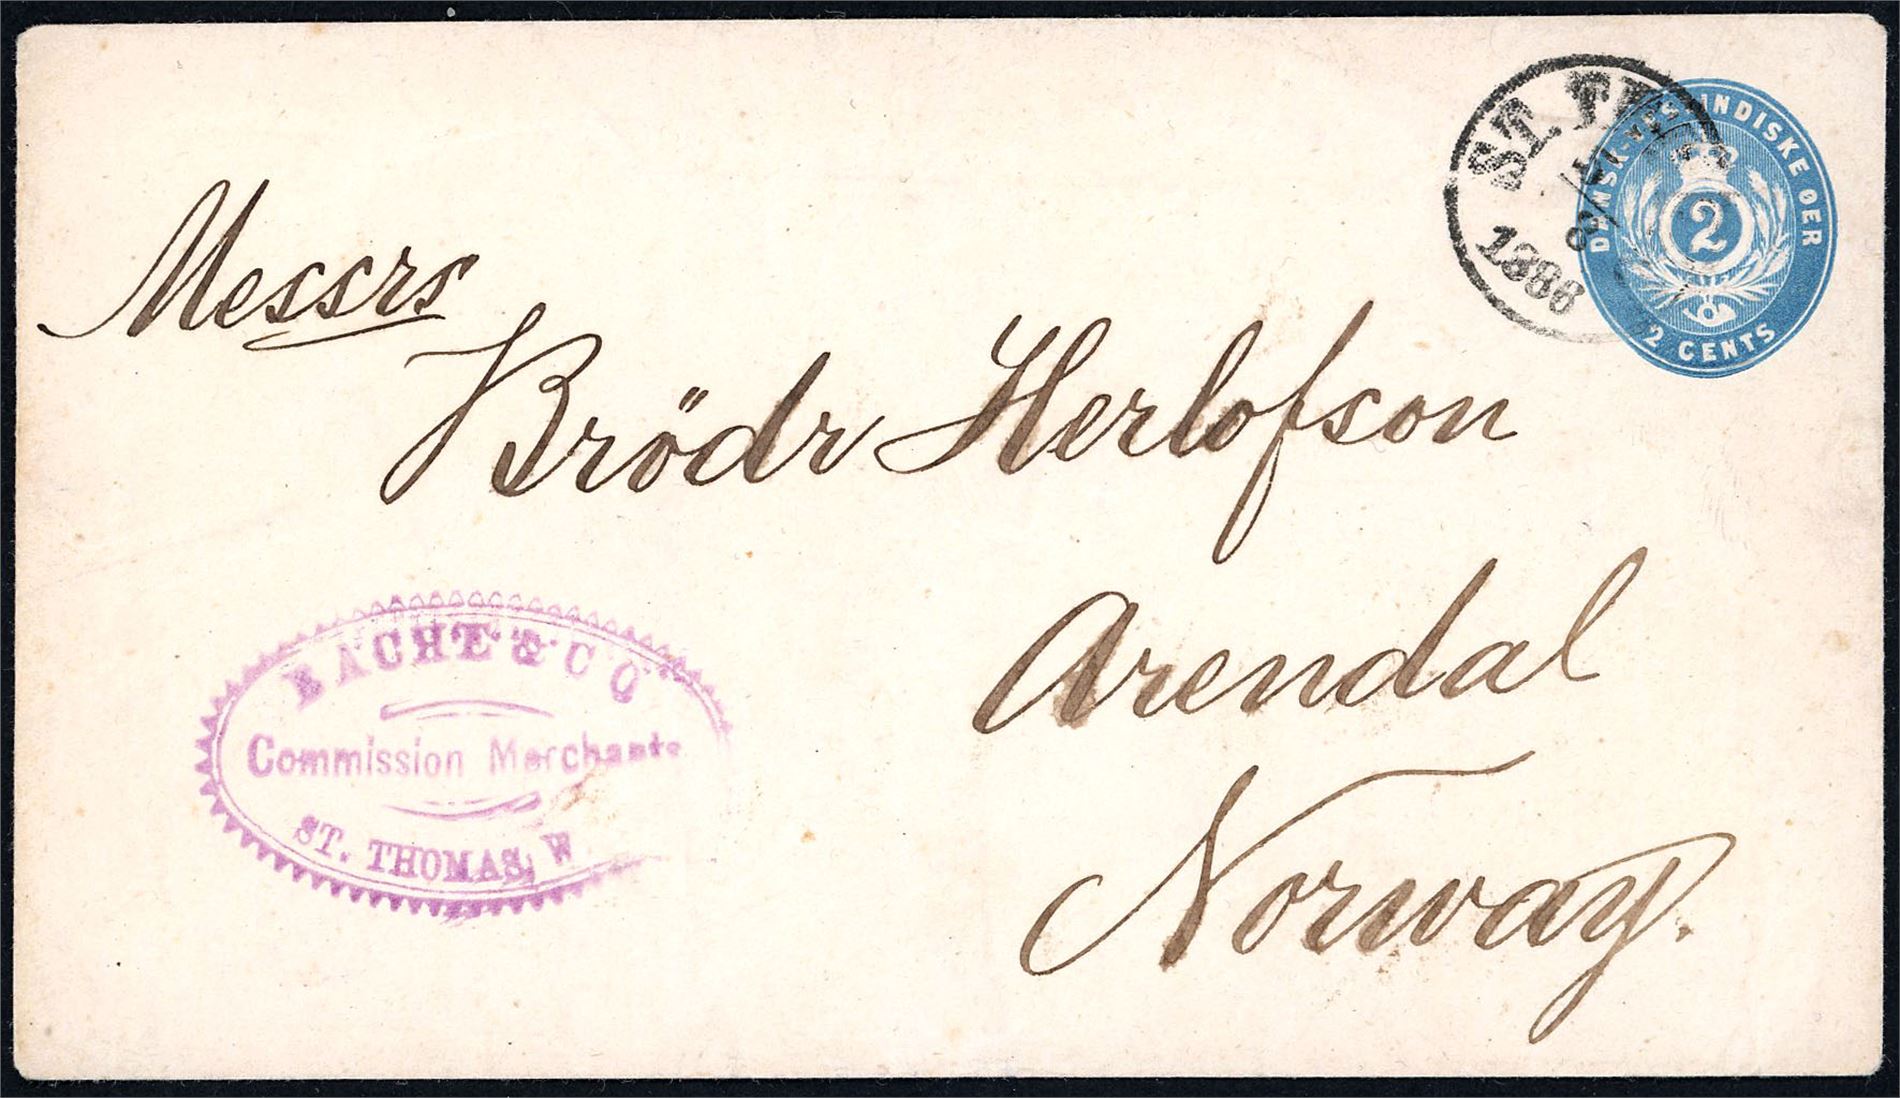 DANSK-VESTINDISKE ØER
2
2 CENTS
ST. TH
1886
Messrs
Brödr Herlofson
Arendal
Norway.
BACHE & CO
Commission Merchants
ST. THOMAS, W